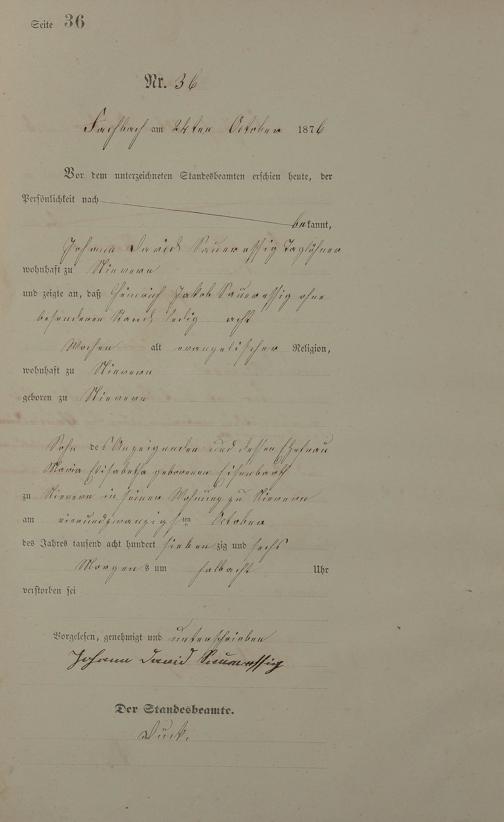 Seite 36
Nr. 36
Fachbach am 24ten October 1876
Vor dem unterzeichneten Standesbeamten erschien heute, der
Persönlichkeit nach
bekannt,
Johann David Saueressig Taglöhner
wohnhaft zu Nievern
und zeigte an, daß Heinrich Jakob Sauressig ohne
besonderen Stand ledig acht
Wochen alt evangelischer Religion,
wohnhaft zu Nievern
geboren zu Nievern
Sohn des Anzeigenden und dessen Ehefrau
Maria Elisabetha geborenen Eisenbarth
zu Nievern in seiner Wohnung zu Nievern
am vierundzwanzigsten October
des Jahres tausend acht hundert siebenzig und sechs
Morgens um halbacht Uhr
verstorben sei
Vorgelesen, genehmigt und unterschrieben
Johann David Saueressig
Der Standesbeamte.